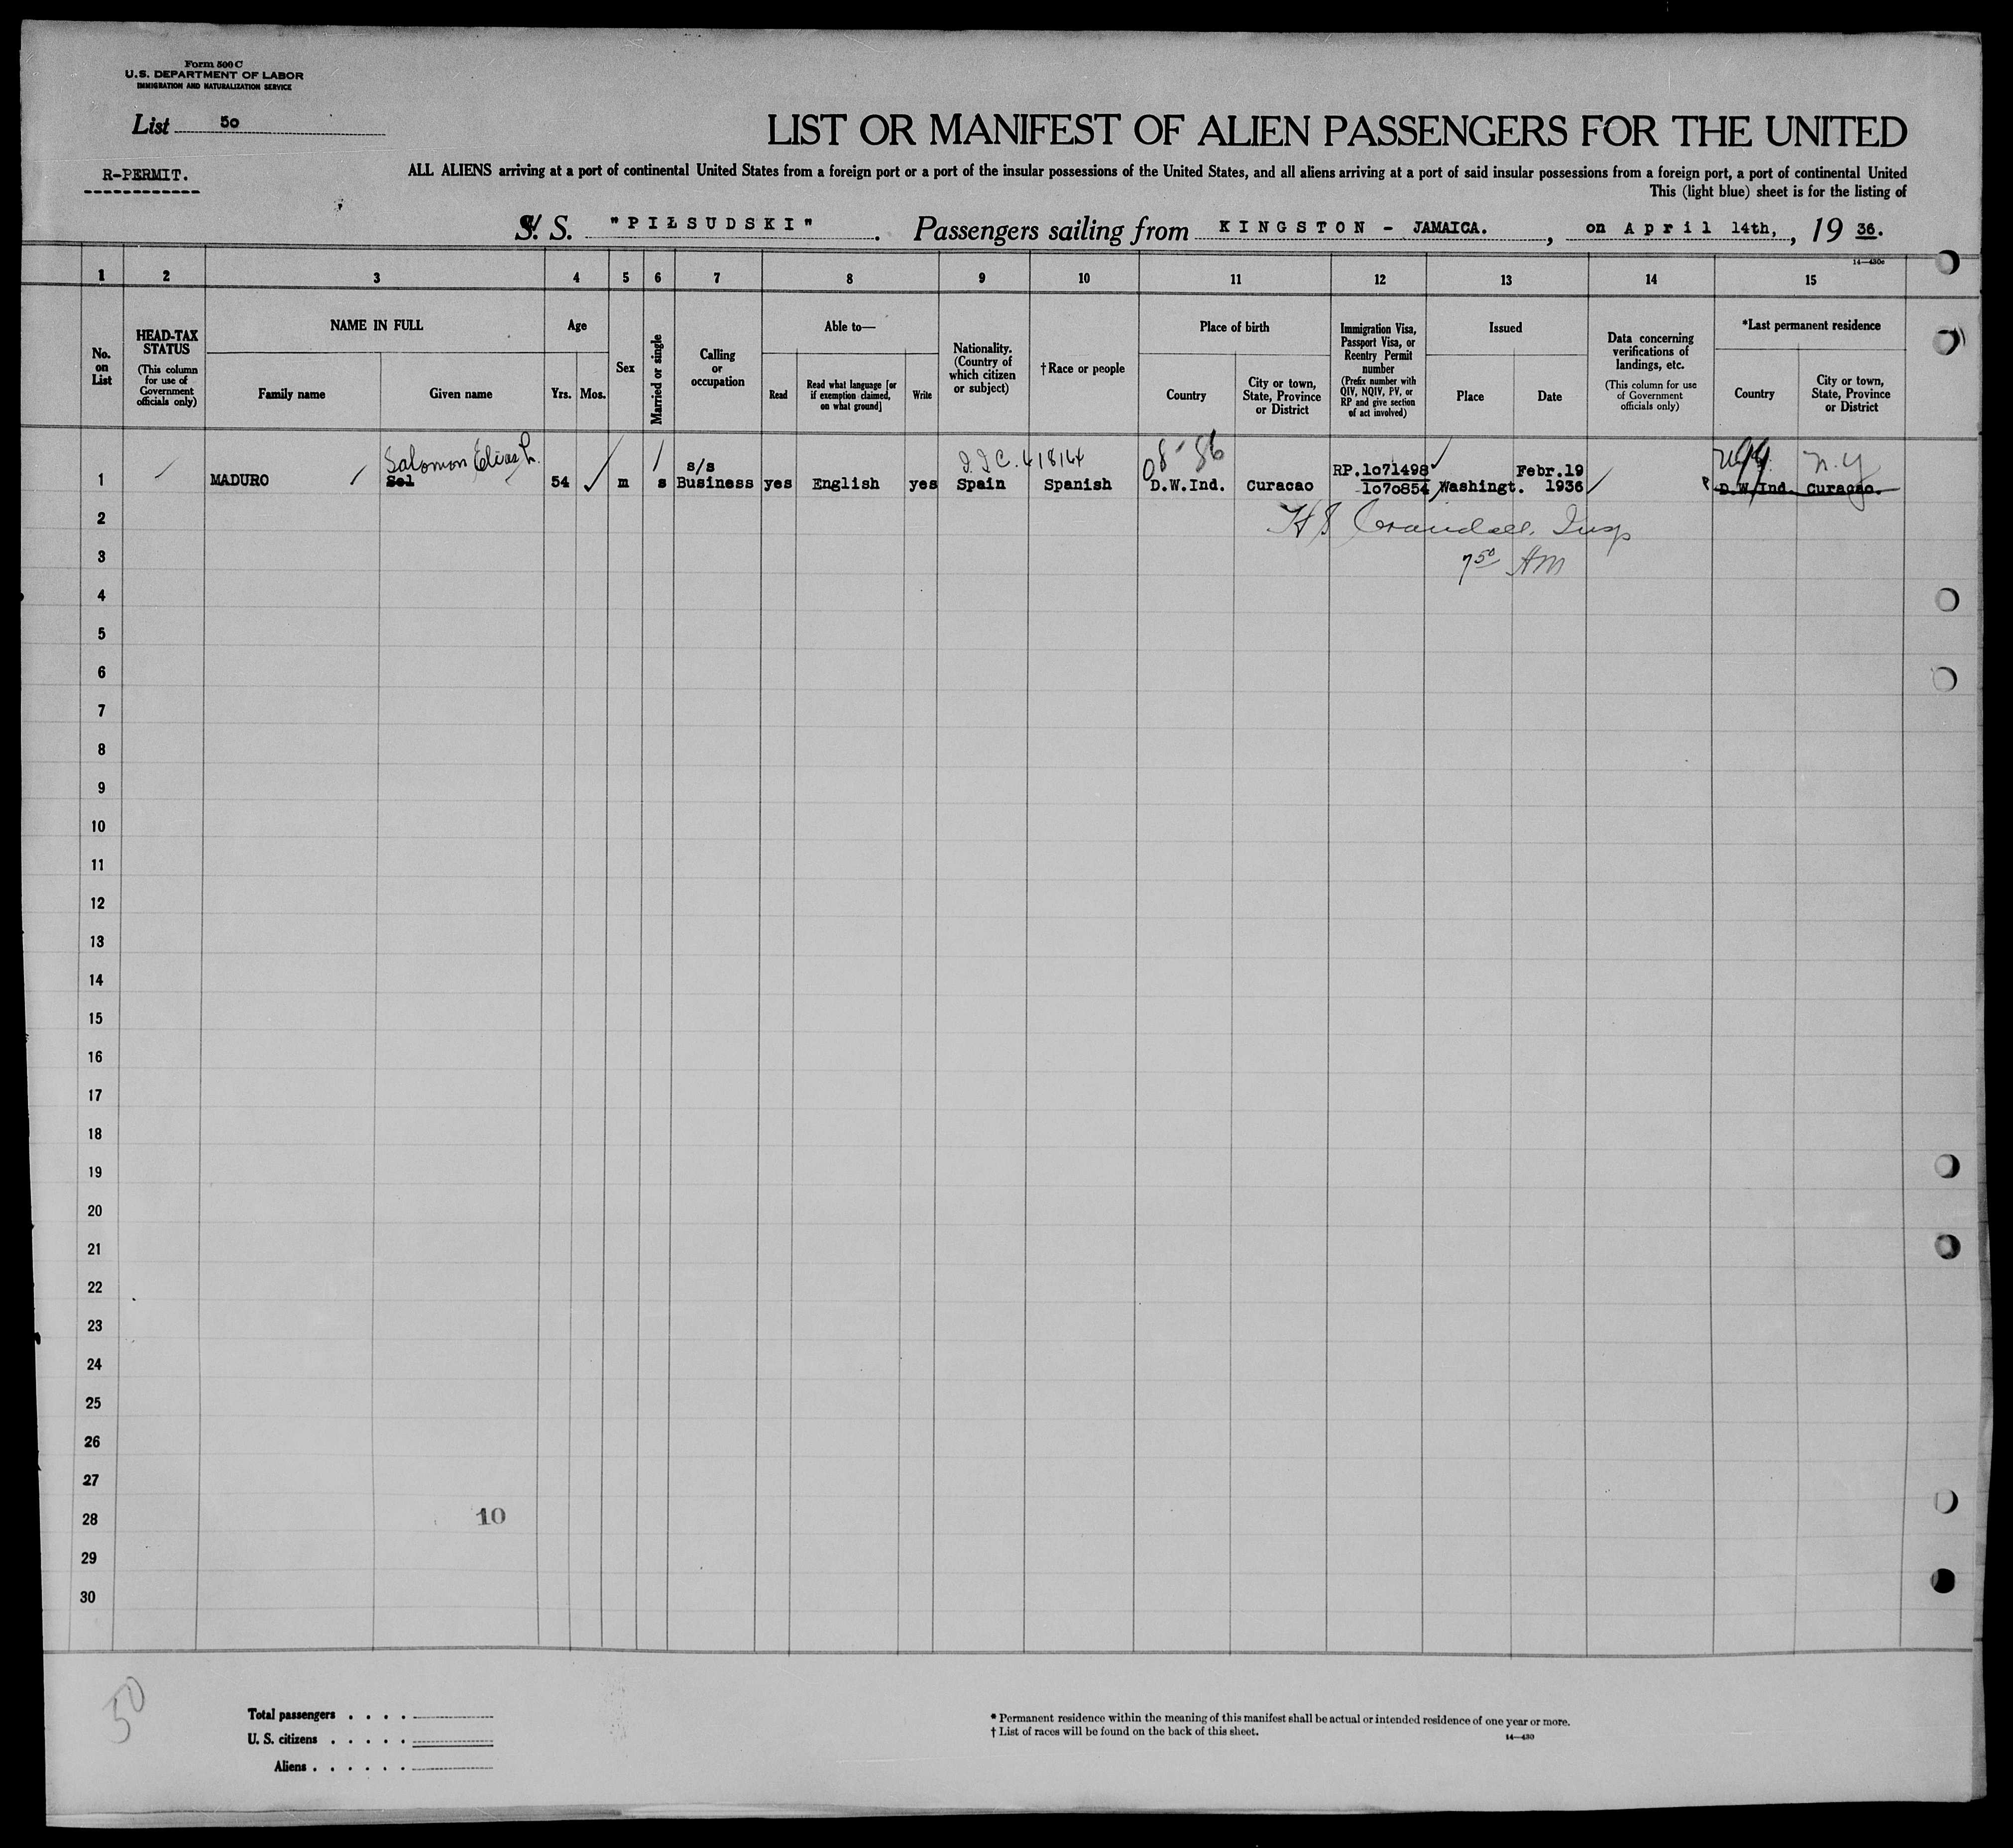 Form 500 C
U.S. DEPARTMENT OF LABOR
IMMIGRATION AND NATURALIZATION SERVICE
List 50
LIST OR MANIFEST OF ALIEN PASSENGERS FOR THE UNITED
R-PERMIT.
ALL ALIENS arriving at a port of continental United States from a foreign port or a port of the insular possessions of the United States, and all aliens arriving at a port of said insular possessions from a foreign port, a port of continental United
This (light blue) sheet is for the listing of
S. S. "PIŁSUDSKI". Passengers sailing from KINGSTON - JAMAICA., on April 14th, , 19 36.
14—430c
1 2 3 4 5 6 7 8 9 10 11 12 13 14 15
No. on List
HEAD-TAX STATUS
(This column for use of Government officials only)
NAME IN FULL
Family name
Given name
Age
Yrs. Mos.
Sex
Married or single
Calling or occupation
Able to—
Read
Read what language [or if exemption claimed, on what ground]
Write
Nationality. (Country of which citizen or subject)
†Race or people
Place of birth
Country
City or town, State, Province or District
Immigration Visa, Passport Visa, or Reentry Permit number
(Prefix number with QIV, NQIV, PV, or RP and give section of act involved)
Issued
Place
Date
Data concerning verifications of landings, etc.
(This column for use of Government officials only)
*Last permanent residence
Country
City or town, State, Province or District
Salomon Elias L. 418144 8-86 N.Y.
s/s RP.1071498 Febr.19
1 MADURO Sol 54 m s Business yes English yes Spain Spanish D.W.Ind. Curacao 1070854 Washingt. 1936 D.W.Ind. Curacao.
2 H S Crandall, Insp
3 7 50 AM
4
5
6
7
8
9
10
11
12
13
14
15
16
17
18
19
20
21
22
23
24
25
26
27
28 10
29
30
50
Total passengers . . . .
U. S. citizens . . . . .
Aliens . . . . . .
* Permanent residence within the meaning of this manifest shall be actual or intended residence of one year or more.
† List of races will be found on the back of this sheet.
14—430